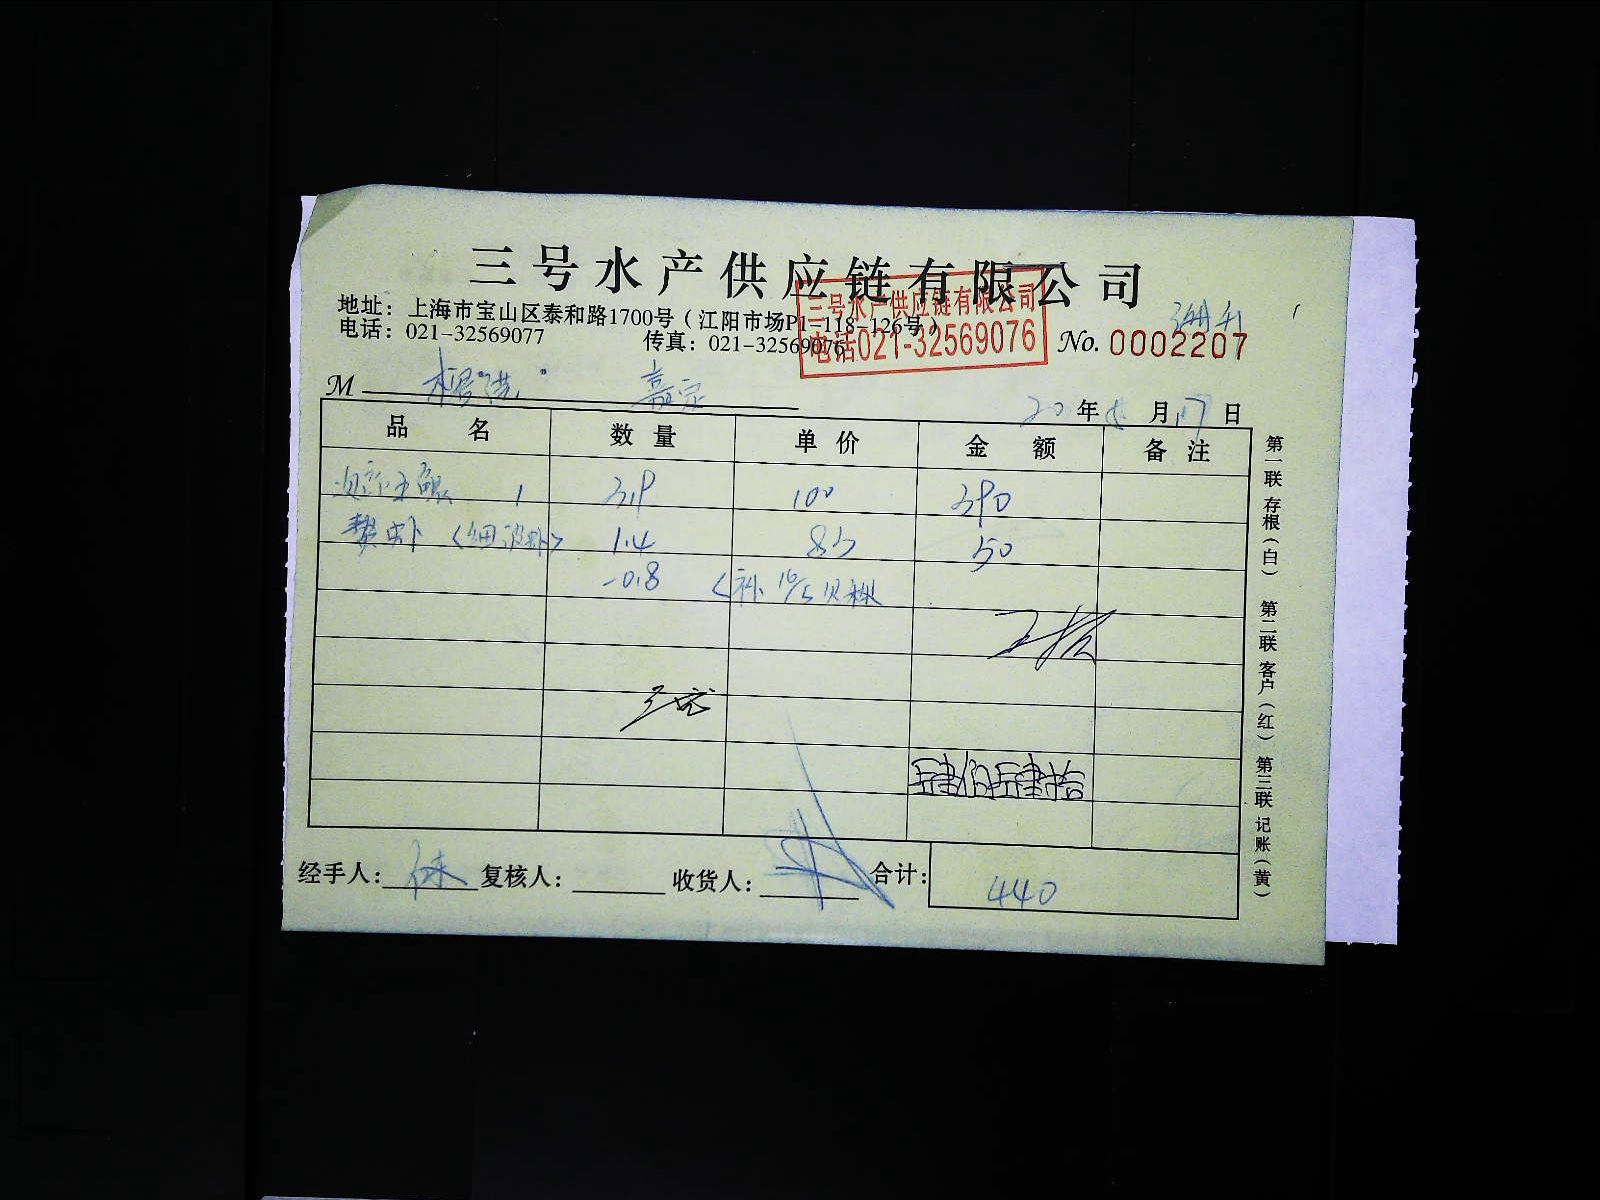 三号水产供应链有限公司
三号水产供应链有限公司
电话021-32569076
地址：上海市宝山区泰和路1700号（江阳市场P1-118-126号）
电话：021-32569077 传真：021-32569076
No. 0002207
M 嘉定
20 年 月 17 日
品名 数量 单价 金额 备注
1 3.9 100 390
1.4 85 50
-0.8 <补
肆佰肆拾
经手人： 复核人： 收货人： 合计： 440
第一联 存根（白） 第二联 客户（红） 第三联 记账（黄）